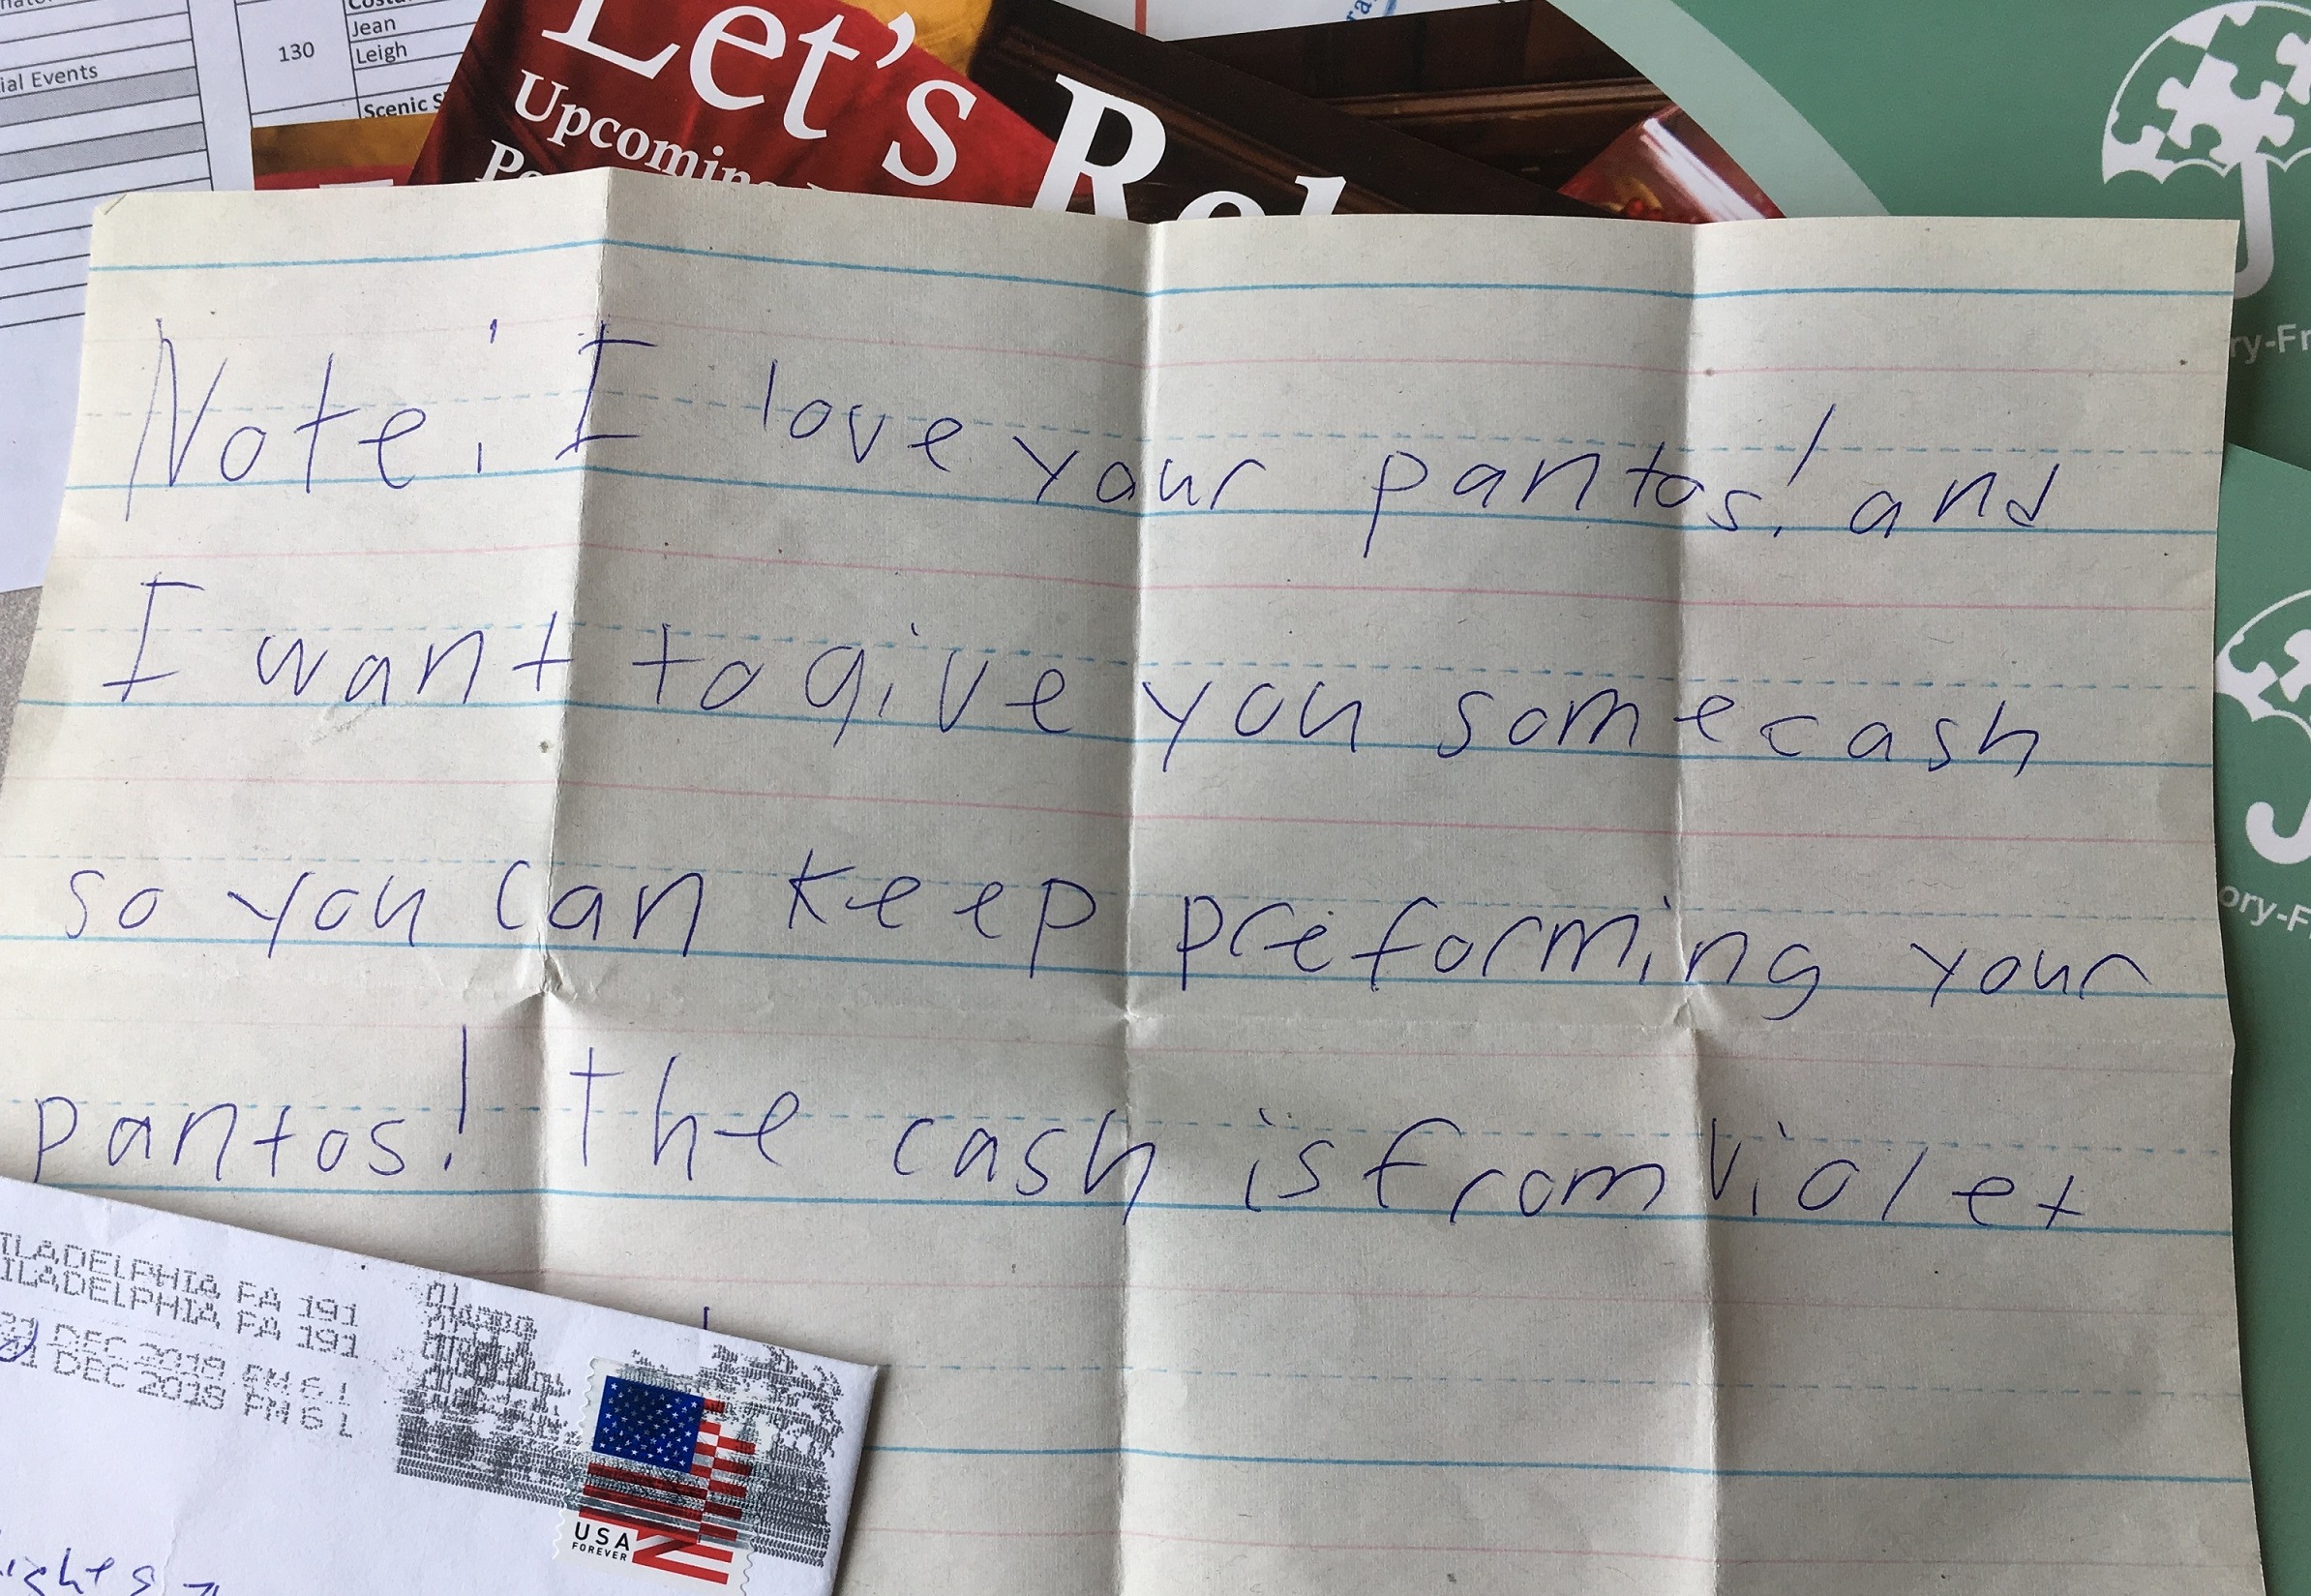 130
Jean
Leigh
ial Events
Scenic
Let's
Upcoming
Note: I love your pantos! and
I want to give you some cash
so you can keep preforming your
pantos! The cash is from Violet
ILADELPHIA PA 191
ILADELPHIA PA 191
21 DEC 2018 PM 6 L
21 DEC 2018 PM 6 L
USA
FOREVER